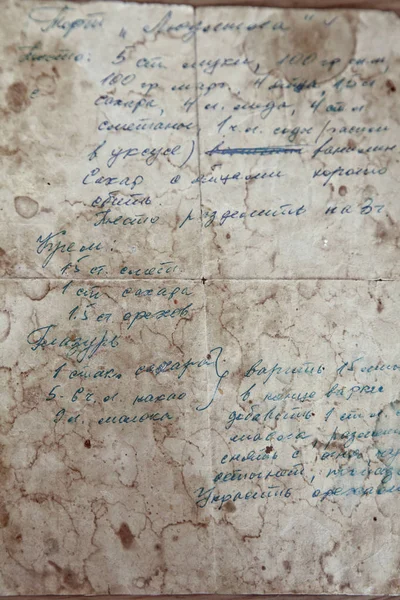 Торт "        "
Тесто: 5 ст муки, 100 гр
100 гр марг, 4 яйца, 1,5 ст
сахара, 4 л. меда, 4 ст л
сметаны 1 ч.л. соды
в уксусе) ванилин
Сахар с яйцами хорошо
сбить
Тесто разделить на 3 ч
Крем:
1,5 ст. смет
1 ст. сахара
1.5 ст орехов
Глазурь
1 стак. сахара
5-6 ч. л. какао
9 л. молока
варить 15 мин
в конце варки
добавить 1 ст л.
масла,
снять с огня
Украсить орехами